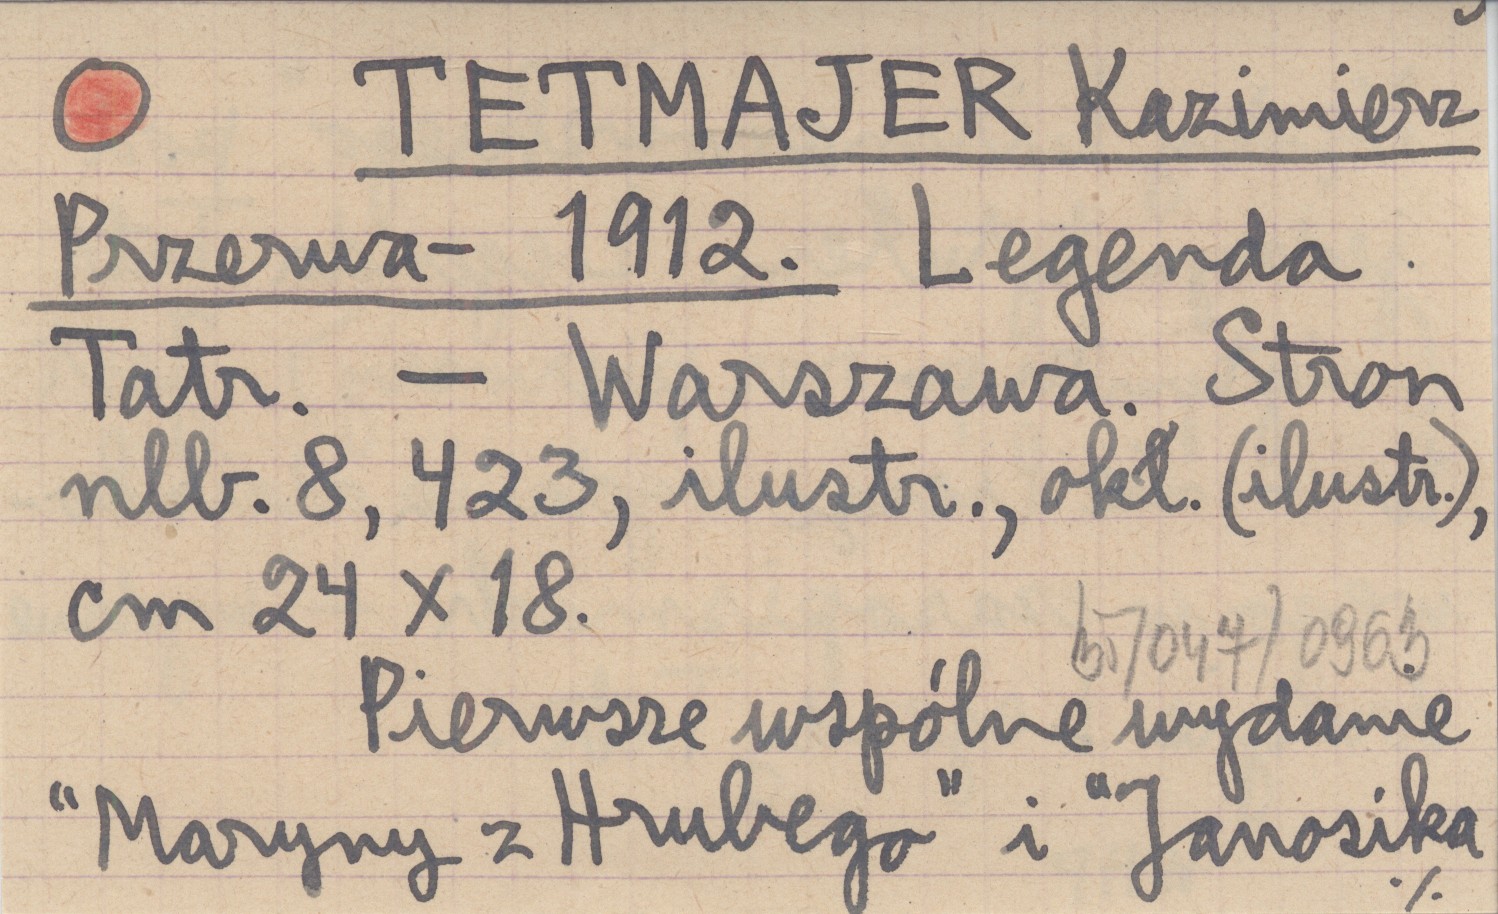 TETMAJER Kazimierz
Przerwa- 1912. Legenda
Tatr. — Warszawa. Stron
nlb. 8, 423, ilustr., okł. (ilustr.),
cm 24 x 18.
/047/ 0963
Pierwsze wspólne wydanie
"Maryny z Hrubego" i "Janosika
./.